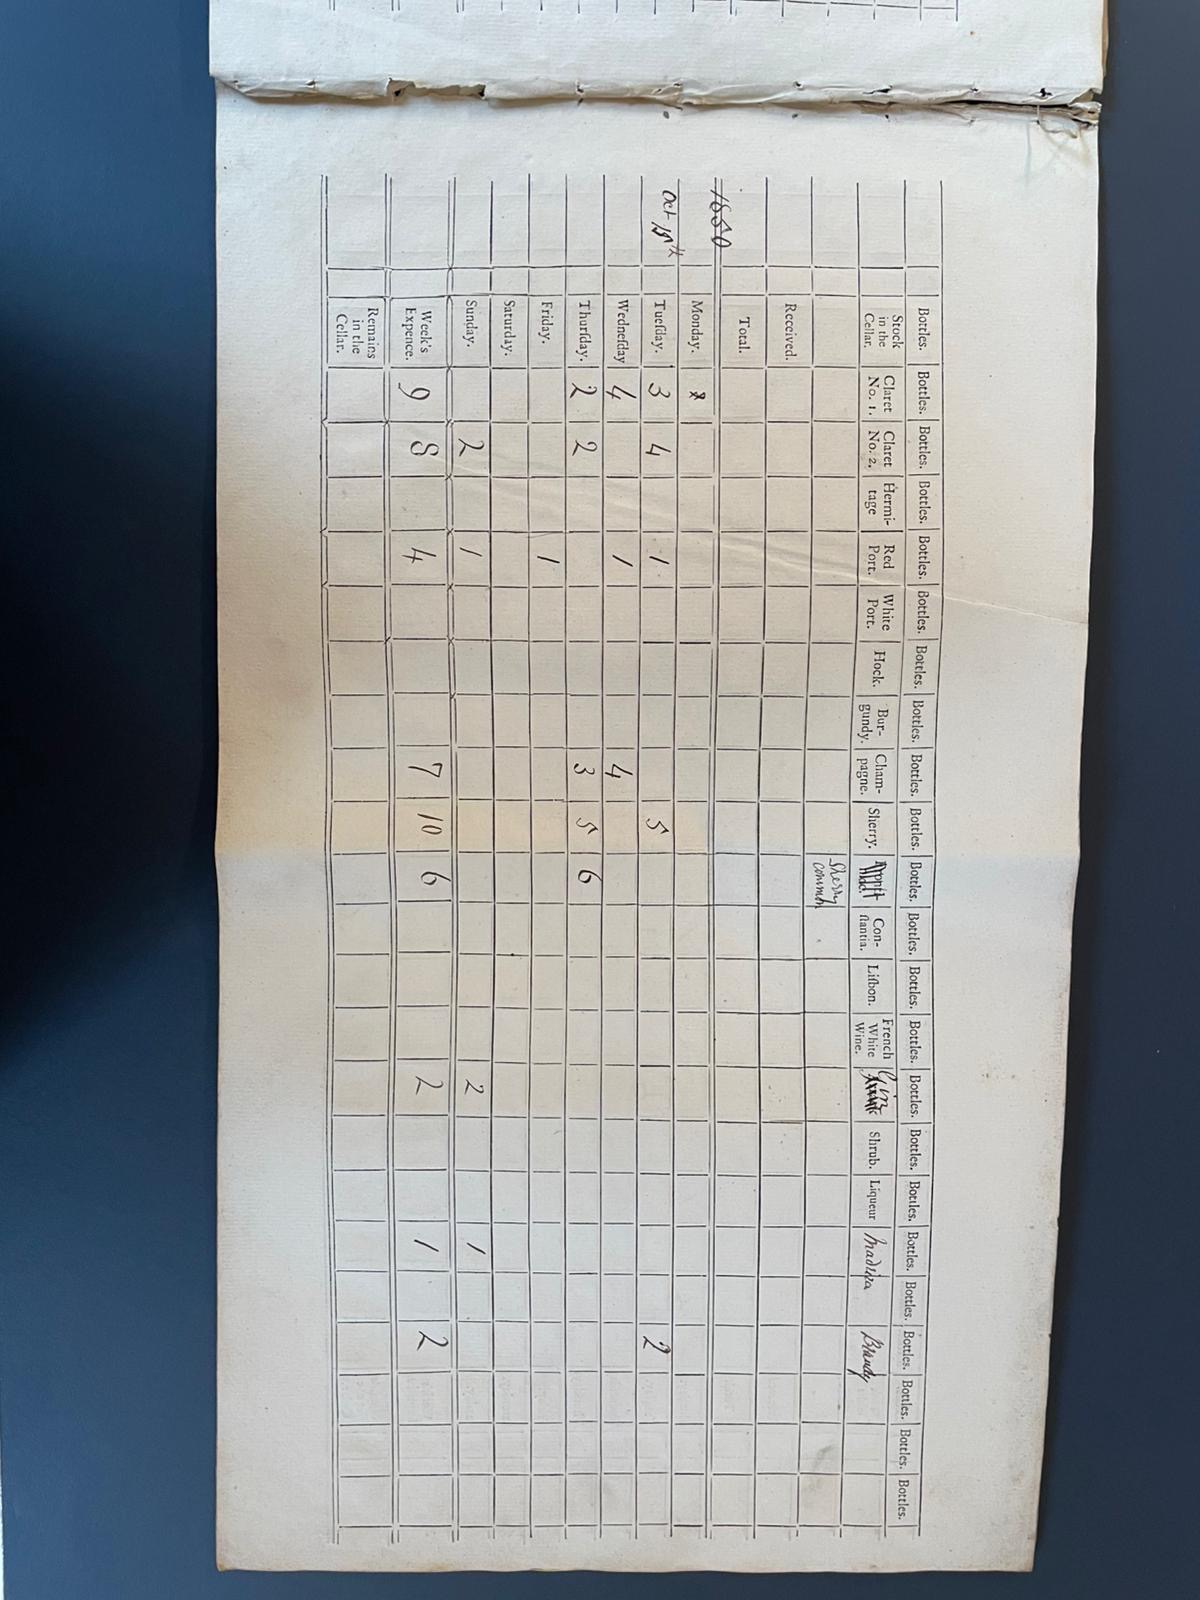 Bottles. Bottles. Bottles. Bottles. Bottles. Bottles. Bottles. Bottles. Bottles. Bottles. Bottles. Bottles. Bottles. Bottles. Bottles. Bottles. Bottles. Bottles. Bottles. Bottles. Bottles. Bottles. Bottles.
Stock in the Cellar. Claret No. 1. Claret No. 2. Hermi-tage Red Port. White Port. Hock. Bur-gundy. Cham-pagne. Sherry. Con-ſtantia. Liſbon. French White Wine. Gin Shrub. Liqueur Madeira Brandy
Sherry common
Received.
1850 Total.
Monday.
Oct 15th Tueſday. 3 4 1 5 2
Wedneſday 4 1 4
Thurſday. 2 2 3 5 6
Friday. 1
Saturday.
Sunday. 2 1 2 1
Week's Expence. 9 8 4 7 10 6 2 1 2
Remains in the Cellar.